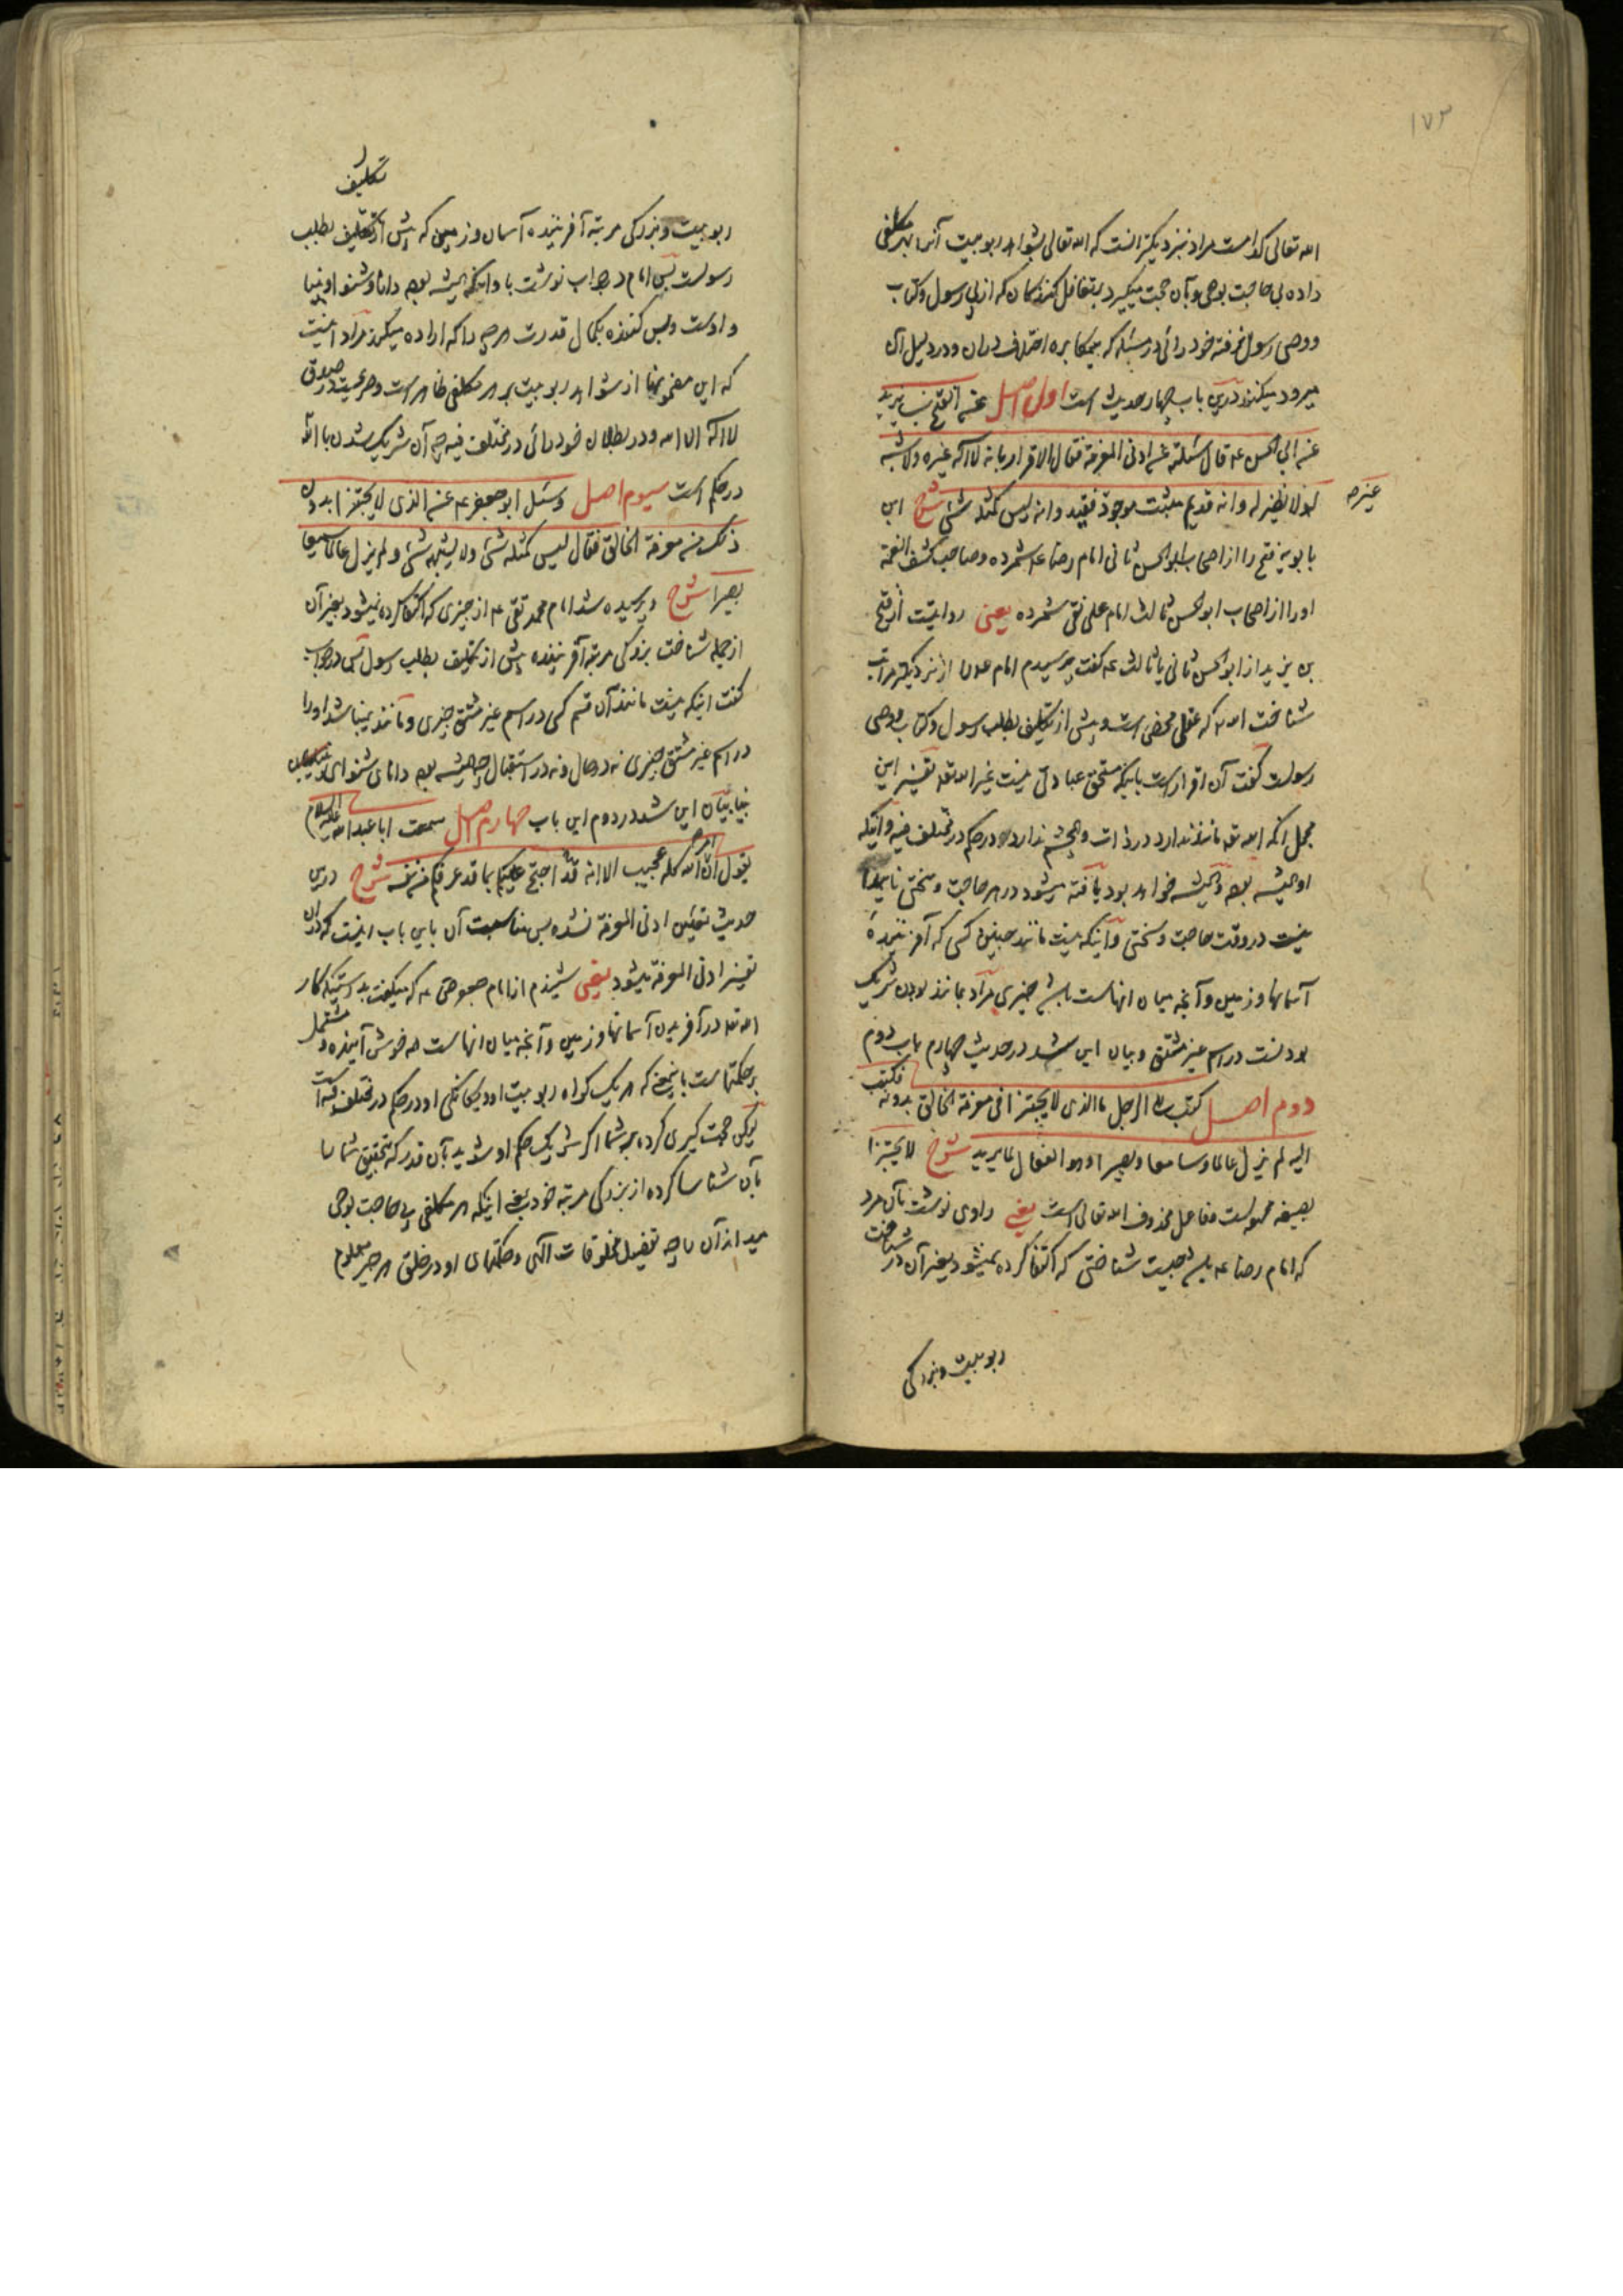 ١٧٣
الله تعالی کدامست مراد بنزدیکتر انست که الله تعالی بشواهد ربوبیت آنرا بهر مکلفی
داده بی حاجت بوحی وبآن حجت میگیرد بر تغافل کنندکان که از پی رسول وکتاب
ووصی رسول نرفته خود رائی در مسئله که بیمکابره اختلاف دران ودر دلیل آن
میرود میکنند درین باب چهار حدیث است اول اصل عن الفتح بن یزید
عن ابی الحسن ع قال سئلته عن ادنی المعرفة فقال الاقرار بانه لا اله غیره ولا شبه
غیره
له ولا نظیر له وانه قدیم مثبت موجود غیر فقید وانه لیس کمثله شئ شرح ابن
بابویه فتح را از اصحاب ابو الحسن ثانی امام رضا ع شمرده وصاحب کشف الغمة
اورا از اصحاب ابو الحسن ثالث امام علی نقی شمرده یعنی روایتست از فتح
بن یزید از ابو الحسن ثانی یا ثالث ع گفت پرسیدم امام را از نزدیکتر مراتب
شناخت الله که عقلی محض است وپیش از تکلیف بطلب رسول وکتاب ووصی
رسولست گفت آن اقرار است باینکه مستحق عبادتی نیست غیر الله تع تفسیر این
مجمل انکه الله تع مانند ندارد در ذات وهمچشم ندارد در حکم در مختلف فیه وانیکه
او همیشه بوده وهمیشه خواهد بود یافته میشود در هر حاجت وسختی ناپیدا
نیست در وقت حاجت وسختی وآنیکه نیست مانند چنین کسی که آفرینندهٔ
آسمانها وزمین وآنچه میان انهاست باشد چیزی مراد بمانند بودن شریک
بودنست در اسم غیر مشتق وبیان این شد در حدیث چهارم باب دوم
دوم اصل کتب الی الرجل ما الذی لا یجتزا فی معرفة الخالق بدونه فکتب
الیه لم یزل عالما وسامعا وبصیرا وهو الفعال لما یرید شرح لا یجتزا
بصیغه مجهولست وفاعل محذوف الله تعالی است یعنی راوی نوشت بآن مرد
که امام رضا ع باشد چیست شناختی که اکتفا کرده نمیشود بغیر آن در شناخت
ربوبیت وبزرکی
تکلیف
ربوبیت وبزرکی مرتبه آفریننده آسمان وزمین که پیش از تکلیف بطلب
رسولست پس امام در جواب نوشت باو اینکه همیشه بوده دانا وشنوا وبینا
واوست وبس کننده بکمال قدرت هرچه را که اراده میکند مراد اینست
که این مضمونها از شواهد ربوبیت بر هر مکلفی ظاهر است وصریحست در صدق
لا اله الا الله ودر بطلان خود رائی در مختلف فیه چه آن شریک شدن با الله
در حکم است سیوم اصل وسئل ابو جعفر ع عن الذی لا یجتزا بدون
ذلک من معرفة الخالق فقال لیس کمثله شئ ولا یشبهه شئ ولم یزل عالما سمیعا
بصیرا شرح وپرسیده شد امام محمد تقی ع از چیزی که اکتفا کرده نمیشود بغیر آن
از جمله شناخت بزرکی مرتبه آفریننده پیش از تکلیف بطلب رسول پس در جواب
گفت اینکه نیست مانند آن قسم کسی در اسم غیر مشتق چیزی ومانند نمیباشد اورا
در اسم غیر مشتق چیزی نه در حال ونه در استقبال چه همیشه بوده دانای شنوای
بینا بیان این شد در دوم این باب چهارم اصل سمعت ابا عبد الله علیه السلام
یقول ان امر الله کله عجیب الا انه قد احتج علیکم بما قد عرفکم من نفسه شرح درین
حدیث تعیین ادنی المعرفة نشده پس مناسبت آن باین باب اینست که دران
تفسیر ادنی المعرفة میشود یعنی شنیدم از امام جعفر صادق ع که میگفت بدرستیکه کار
الله تع در آفریدن آسمانها وزمین وآنچه میان انهاست همه خوش آینده ومشتمل
بر حکمتهاست باینمعنی که هر یک کواه ربوبیت او ویکانکی او در حکم در مختلف فیه است
لیکن حجت گیری کرده بر شما اگر شریک حکم او شوید بآن قدر که بتحقیق شما را
بآن شناسا کرده از بزرکی مرتبه خود یعنی اینکه هر مکلفی بی حاجت بوحی
میداند آن را چه تفصیل مخلوقات الهی وحکمتهای او در خلق هر چیز معلوم